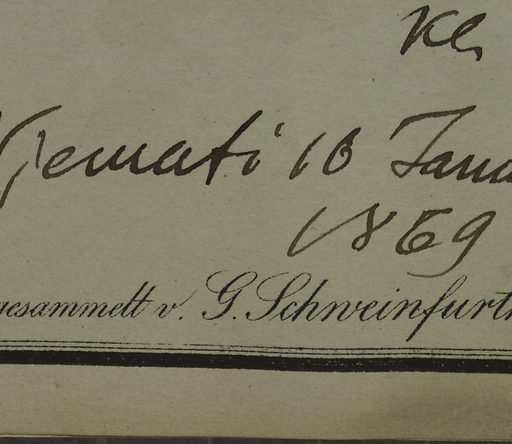 Ke
Djemati 16 Janu
1869
gesammelt v. G. Schweinfurth